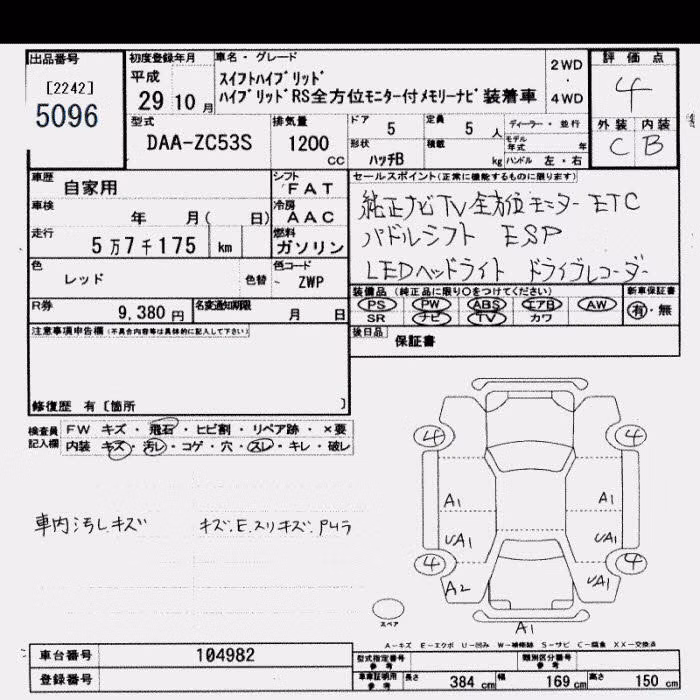 出品番号
[2242]
5096
初度登録年月
平成
29 10 月
車名・グレード
スイフトハイブリッド
ハイブリッドRS全方位モニター付メモリーナビ装着車
2WD
・
4WD
評価点
4
外装 内装
C B
型式
DAA-ZC53S
排気量
1200
cc
ドア 5
定員 5 人
ディーラー・並行
形状
ハッチB
積載 kg
モデル年式 年
ハンドル 左・右
車歴
自家用
シフト
FAT
車検
年 月( 日)
冷房
AAC
走行
5万7千175 km
燃料
ガソリン
色
レッド
色替
色コード
ZWP
R券
9,380 円
名変通知期限
月 日
セールスポイント(正常に機能するものに限ります)
純正ナビTV全方位モニター ETC
パドルシフト ESP
LEDヘッドライト ドライブレコーダー
装備品(純正品に限り○をつけてください)
新車保証書
PS PW ABS エアB AW
有・無
SR ナビ TV カワ
後日品
保証書
注意事項申告欄(不具合内容等は具体的に記入して下さい)
修復歴 有〔箇所 〕
検査員
記入欄
FW キズ・飛石・ヒビ割・リペア跡・×要
内装 キズ・汚レ・コゲ・穴・スレ・キレ・破レ
車内汚レキズ
キズ.E.スリキズ.
4 4
A1 A1
UA1 UA1
4 4
A2 UA1
A1
スペア
A-キズ E-エクボ U-凹み W-補修跡 S-サビ C-腐食 XX-交換済
車台番号
104982
登録番号
型式指定番号
参考
類別区分番号
参考
車庫証明用
参考
長さ 384 cm
幅 169 cm
高さ 150 cm